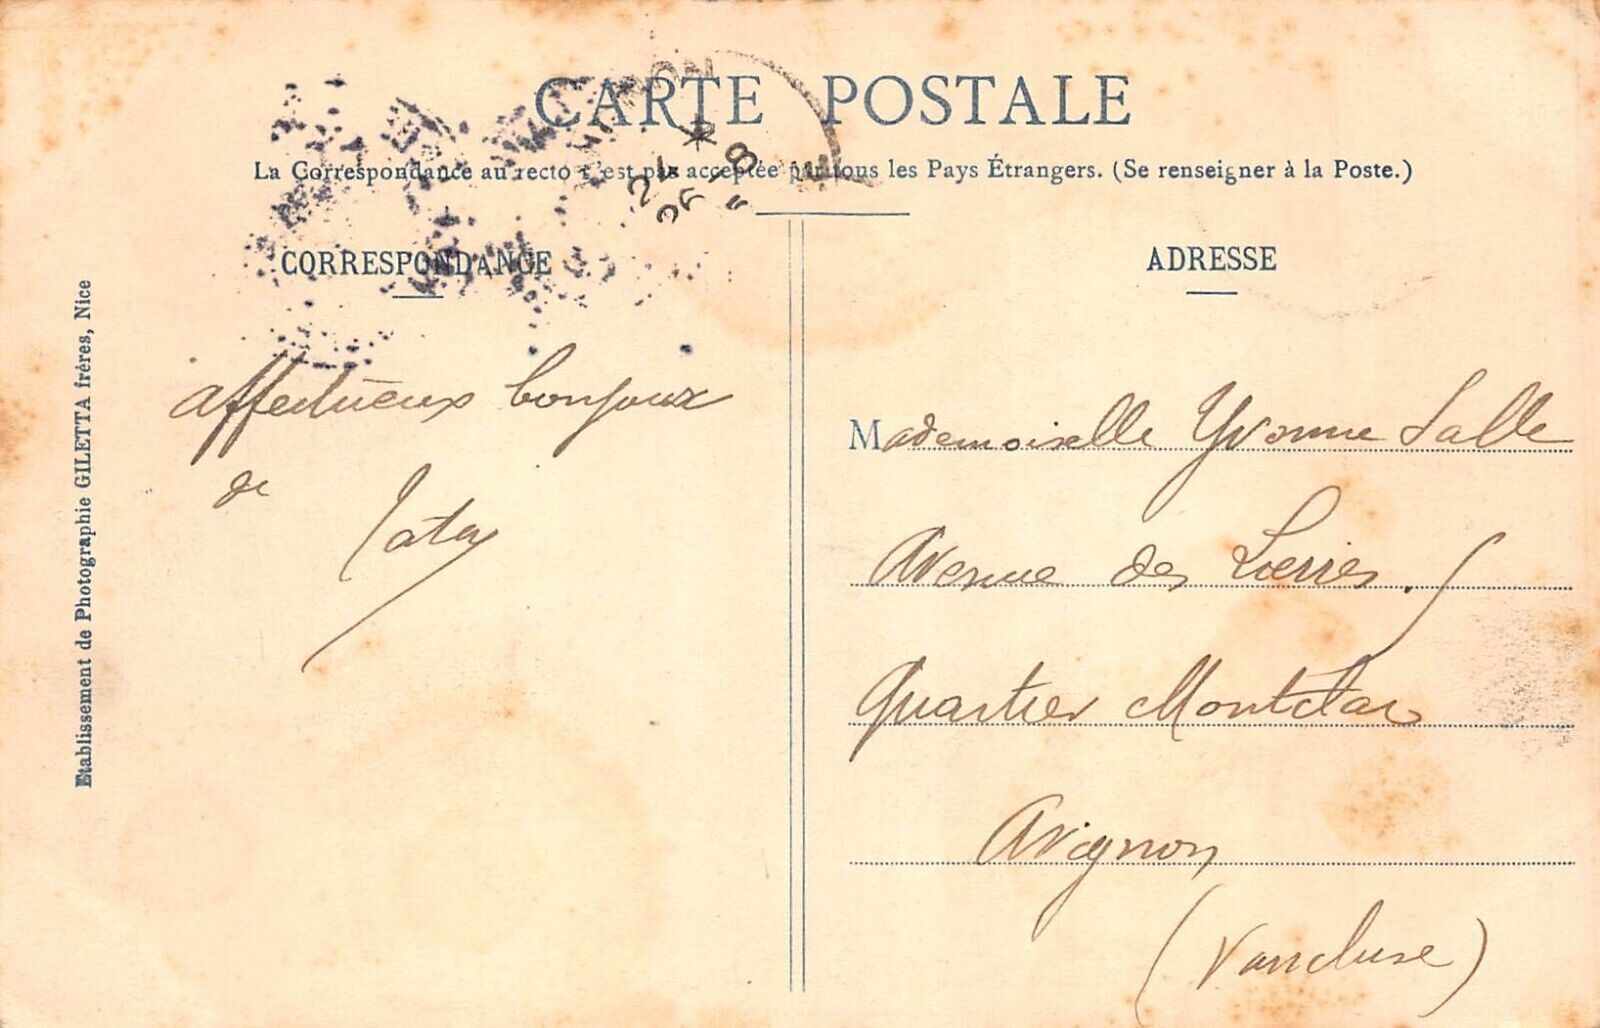 CARTE POSTALE
La Correspondance au recto n'est pas acceptée par tous les Pays Étrangers. (Se renseigner à la Poste.)
CORRESPONDANCE
ADRESSE
Etablissement de Photographie GILETTA frères, Nice
affectueux bonjour
de
Tata
Mademoiselle Yvonne Salle
Avenue des Lierres.
Quartier Montclar
Avignon
(Vaucluse)